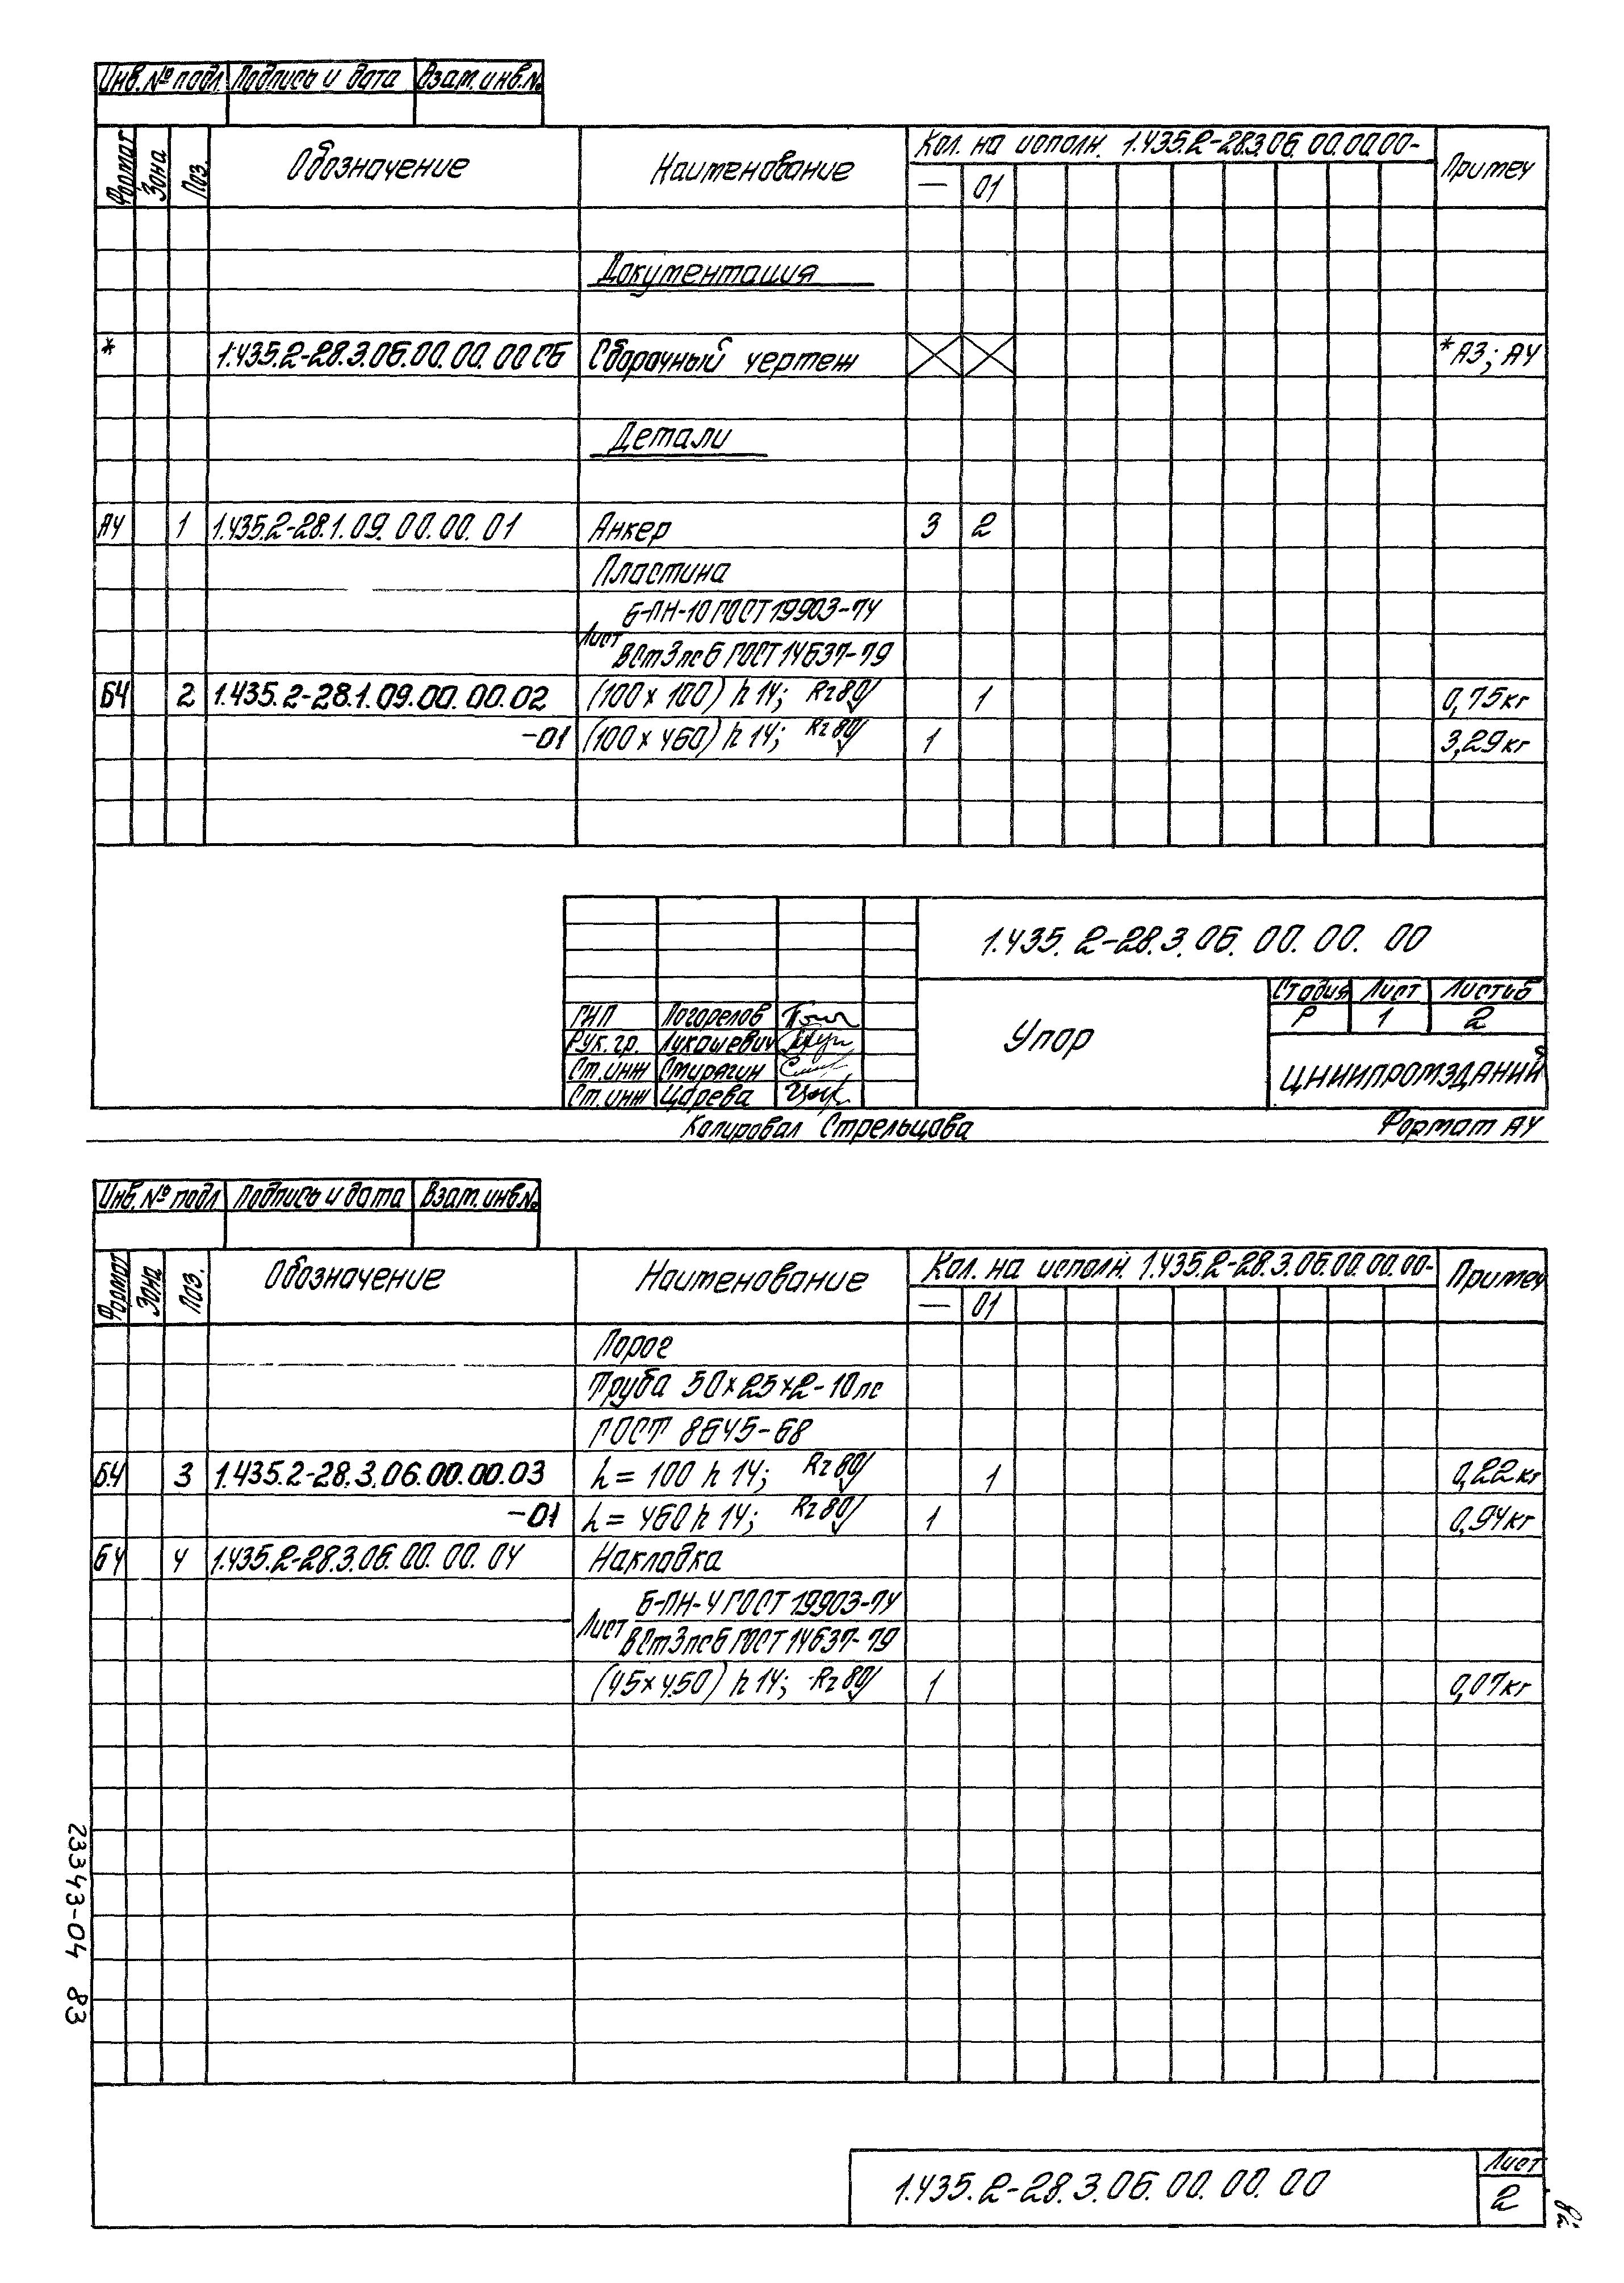 Инв. № подл. Подпись и дата Взам. инв. №
Формат Зона Поз. Обозначение Наименование Кол. на исполн. 1.435.2-28.3.06.00.00.00- Примеч
— 01
Документация
* 1.435.2-28.3.06.00.00.00 СБ Сборочный чертеж *А3; А4
Детали
А4 1 1.435.2-28.1.09.00.00.01 Анкер 3 2
Пластина
Б-ПН-10 ГОСТ 19903-74
Лист
ВСт3пс6 ГОСТ 14637-79
БЧ 2 1.435.2-28.1.09.00.00.02 (100×100) h14; Rz80 1 0,75кг
-01 (100×460) h14; Rz80 1 3,29кг
1.435.2-28.3.06.00.00.00
Стадия Лист Листов
Р 1 2
ГИП Погорелов
Рук. гр. Лукашевич
Упор
Ст. инж Стирягин
Ст. инж Царева
ЦНИИПРОМЗДАНИЙ
Копировал Стрельцова Формат А4
Инв. № подл Подпись и дата Взам. инв. №
Формат Зона Поз. Обозначение Наименование Кол. на исполн. 1.435.2-28.3.06.00.00.00- Примеч
— 01
Порог
Труба 50×25×2-10пс
ГОСТ 8645-68
БЧ 3 1.435.2-28.3.06.00.00.03 L= 100 h14; Rz80 1 0,22кг
-01 L= 460 h14; Rz80 1 0,94кг
БЧ 4 1.435.2-28.3.06.00.00.04 Накладка
Б-ПН-4 ГОСТ 19903-74
Лист
ВСт3пс6 ГОСТ 14637-79
(45×450) h14; Rz80 1 0,07кг
23343-04 83
1.435.2-28.3.06.00.00.00
Лист
2
82